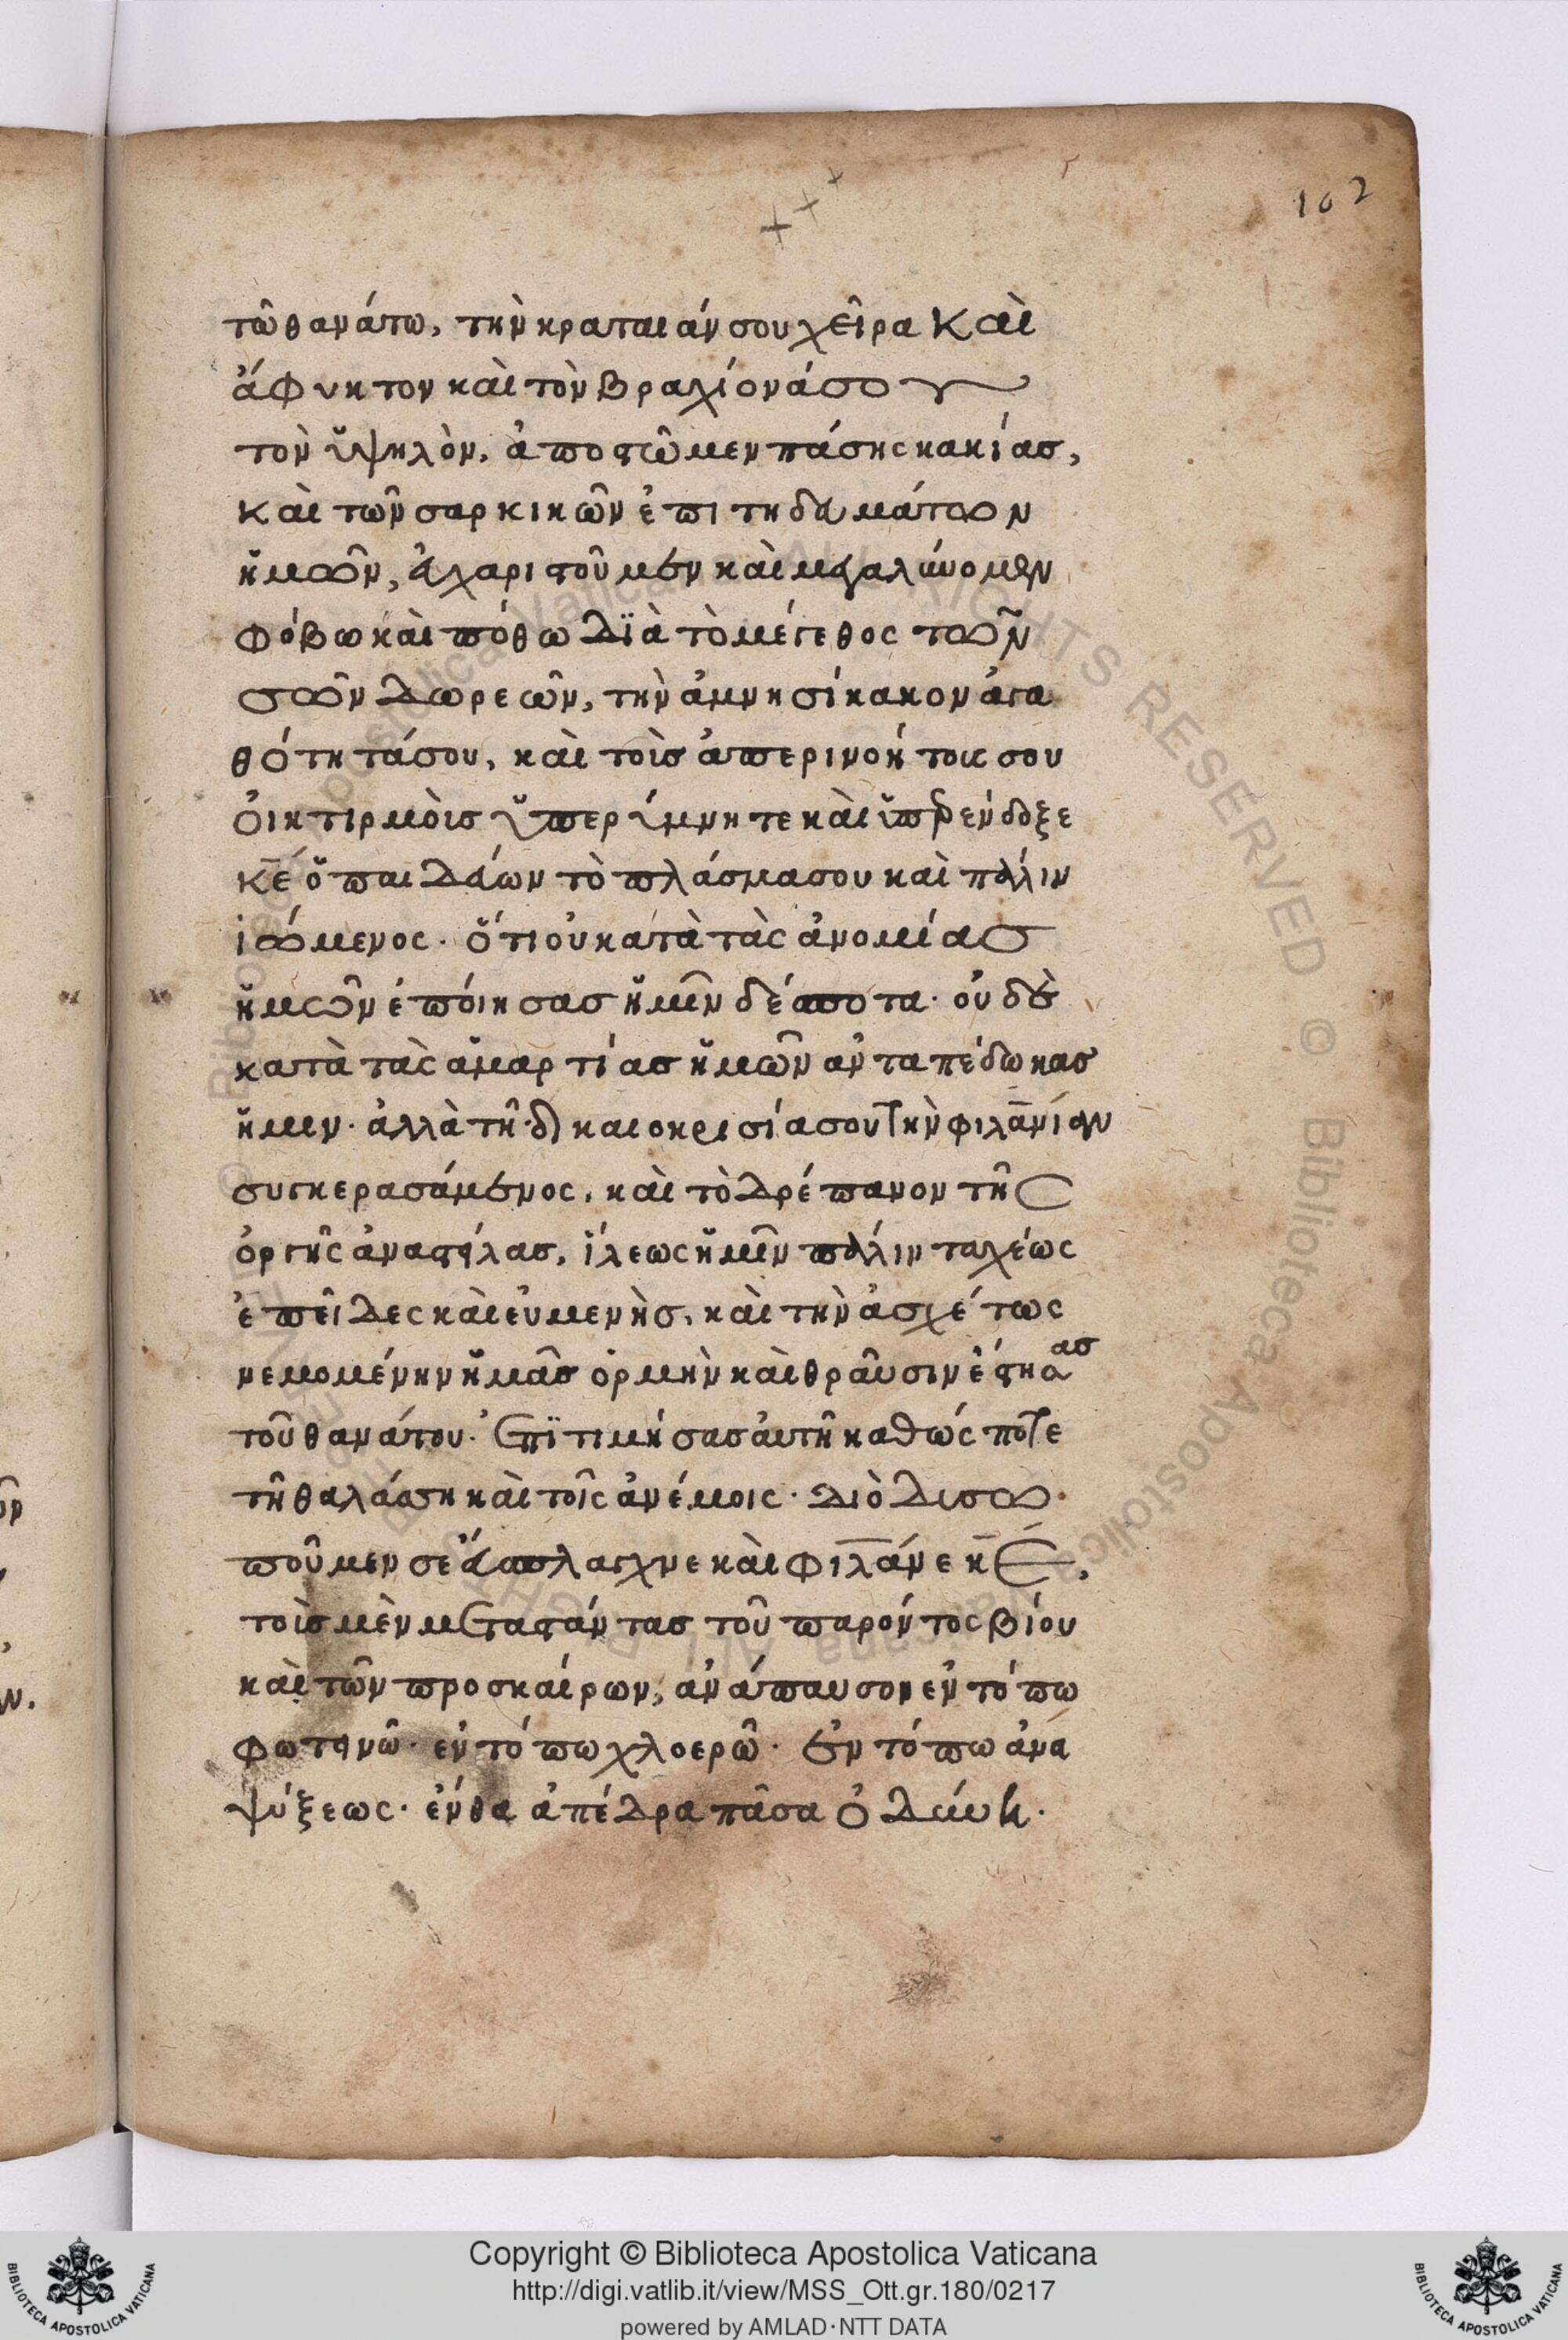 102
τῶ θανάτω, τὴν κραταιάν σου χεῖρα καὶ
ἄφυκτον καὶ τὸν βραχίονά σου
τὸν ὑψηλὸν, ἀποστῶμεν πάσης κακίας,
καὶ τῶν σαρκικῶν ἐπιτηδευμάτων
ἡμῶν, εὐχαριστοῦμέν καὶ μεγαλύνομεν
φόβω καὶ πόθω διὰ τὸ μέγεθος τῶν
σῶν δωρεῶν, τὴν ἀμνησίκακον ἀγα
θότητά σου, καὶ τοὶς ἀπερινοήτοις σου
οἰκτιρμὸις ὑπερύμνητε καὶ ὑπερένδοξε
κε̄ ὁ παιδεύων τὸ πλάσμα σου καὶ πάλιν
ἰώμενος. ὅτι οὐ κατὰ τὰς ἀνομίας
ἡμῶν ἐπόιησας ἡμῖν δέσποτα. οὐδὲ
κατὰ τὰς ἁμαρτίας ἡμῶν ἀνταπέδωκας
ἡμιν. ἀλλὰ τῆ δικαιοκρισία σου τὴν φιλᾱνίαν
συγκερασάμενος, καὶ τὸ δρέπανον τῆς
ὀργῆς ἀναστείλας, ἵλεως ἡμῖν πάλιν ταχέως
ἐπεῖδες καὶ εὐμενὴς, καὶ τὴν ἀσχέτως
νεμομένην ἡμᾶς ὁρμὴν καὶ θραῦσιν ἔστησας
τοῦ θανάτου. Ἐπϊτιμήσας ἀυτῆ καθώς ποτε
τῆ θαλάσση καὶ τοῖς ἀνέμοις. διὸ δυσω
ποῦμεν σε εὔσπλαγχνε καὶ φιλᾱνε κ̄ε,
τοὶς μὲν μεταστάντας τοῦ παρόντος βίου
καὶ τῶν προσκαίρων, ἀνάπαυσον ἐν τόπω
φωτεινῶ. ἐν τόπω χλοερῶ. ἐν τόπω ἀνα
ψύξεως. ἔνθα ἀπέδρα πᾶσα ὀδύνη.
Copyright © Biblioteca Apostolica Vaticana
http://digi.vatlib.it/view/MSS_Ott.gr.180/0217
powered by AMLAD·NTT DATA
BIBLIOTECA APOSTOLICA VATICANA
BIBLIOTECA APOSTOLICA VATICANA